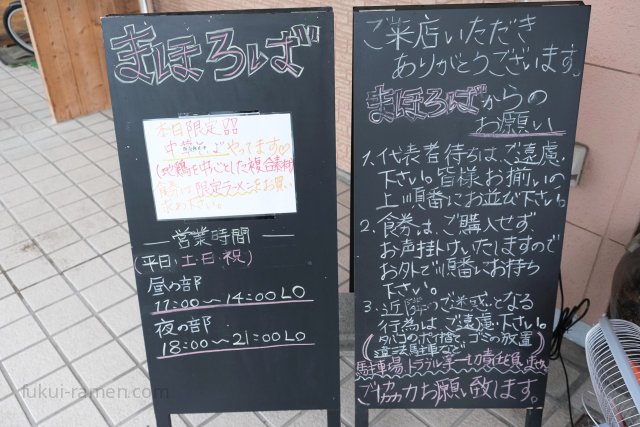 まほろば
本日限定器
中華そばやってます♡
(地鶏を中心とした複合素材)
食券は限定ラーメンをお買い
求め下さい。
営業時間
(平日・土日・祝)
昼の部
11:00〜14:00 LO
夜の部
18:00〜21:00 LO
ご来店いただき
ありがとうございます。
まほろばからの
お願い
1.代表者待ちは、ご遠慮
下さい。皆様お揃いの
上順番にお並び下さい。
2.食券は、ご購入せず、
お声掛けいたしますので
お外で順番にお待ち
下さい。
3.近隣のご迷惑となる
行為は、ご遠慮下さい。
(タバコのポイ捨て、ゴミの放置
違法駐車など)
駐車場トラブル等一切責任を負いません
ご協力お願い致します。
fukui-ramen.com